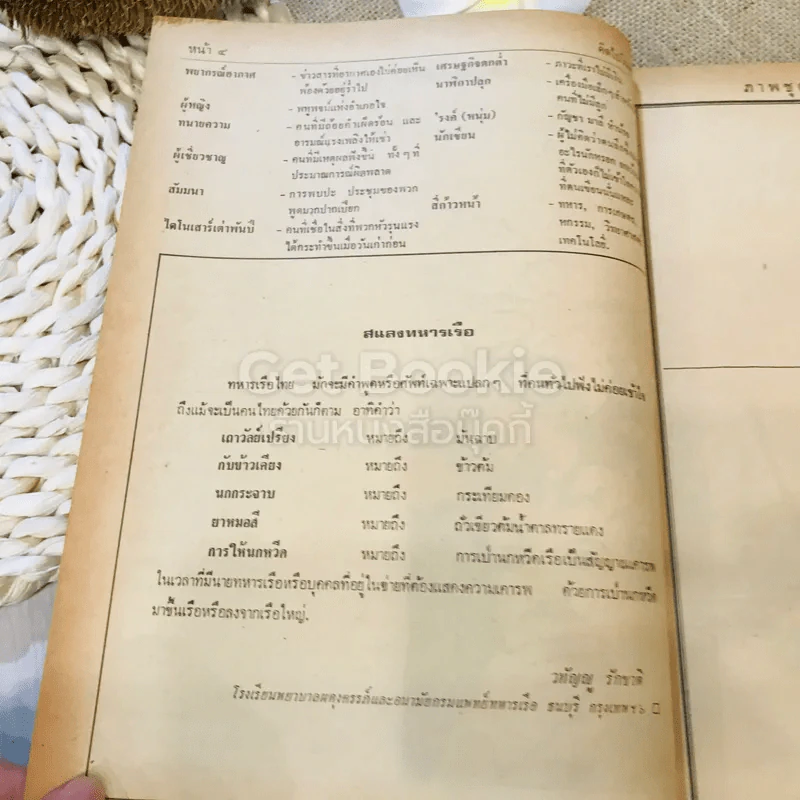 หน้า ๔
พยากรณ์อากาศ - ข่าวสารที่อากาศเองไม่ค่อยเห็น
พ้องด้วยอยู่ร่ำไป
ผู้หญิง - พหูพจน์แห่งอำเภอใจ
ทนายความ - คนที่มีถ้อยคำเผ็ดร้อน และ
อารมณ์แรงเพลิงให้เช่า
ผู้เชี่ยวชาญ - คนที่มีเหตุผลฟังขึ้น ทั้งๆ ที่
ประมาณการณ์ผิดพลาด
สัมมนา - การพบปะ ประชุมของพวก
พูดมากปากเปียก
ไดโนเสาร์เต่าพันปี - คนที่เชื่อในสิ่งที่พวกหัวรุนแรง
ได้กระทำขึ้นเมื่อวันเก่าก่อน
เศรษฐกิจตกต่ำ - ภาวะที่เราไม่มี
นาฬิกาปลุก - เครื่องมือเล็กๆ
คนที่ไม่มีลูก
ร็งค์ (พหุ่ม) - กัญชา
นักเขียน - ผู้ไม่คิดว่าคนอื่น
ที่ตัวเองก็ไม่เข้าใจ
ที่ตนเขียนนั้นแหละ
สี่ก้าวหน้า - ทหาร, การเกษตร,
หกรรม, วิทยาศาสตร์
เทคโนโลยี่.
ภาพชุด
สแลงทหารเรือ
ทหารเรือไทย มักจะมีคำพูดหรือศัพท์เฉพาะแปลกๆ ที่คนทั่วไปฟังไม่ค่อยเข้าใจ
ถึงแม้จะเป็นคนไทยด้วยกันก็ตาม อาทิคำว่า
เถาวัลย์เปรียง หมายถึง มันฉาบ
กับข้าวเคียง หมายถึง ข้าวต้ม
นกกระจาบ หมายถึง กระเทียมดอง
ยาหมอสี หมายถึง ถั่วเขียวต้มน้ำตาลทรายแดง
การให้นกหวีด หมายถึง การเป่านกหวีดเรือเป็นสัญญาณเคารพ
ในเวลาที่มีนายทหารเรือหรือบุคคลที่อยู่ในข่ายที่ต้องแสดงความเคารพ ด้วยการเป่านกหวีด
มาขึ้นเรือหรือลงจากเรือใหญ่.
วทัญญู รักชาติ
โรงเรียนพยาบาลผดุงครรภ์และอนามัยกรมแพทย์ทหารเรือ ธนบุรี กรุงเทพฯ ๖ □
Get Bookie
ร้านหนังสือบุ๊คกี้